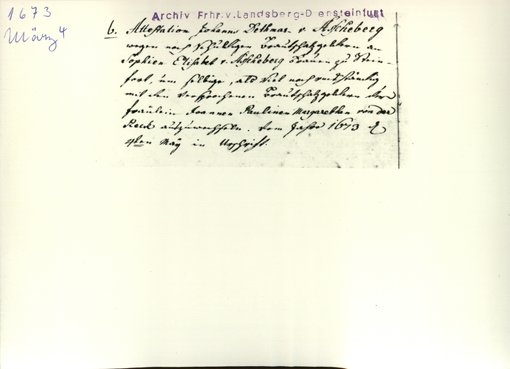 1673
März 4
Archiv Frhr.v.Landsberg-D ensteinfurt
6. Attestation Johann Detmar v. Ascheberg
wegen noch schuldigen Brautschatzgeldern an
Sophien Elisabet v. Ascheberg Frauen zu
um selbige, als viel noch
mit den versprochenen Brautschatzgeldern
fräulein Joannen Paulinen Margarethen von der
Reck auszuwechseln. vom Jahre 1673 d
4ten May in Urschrift.